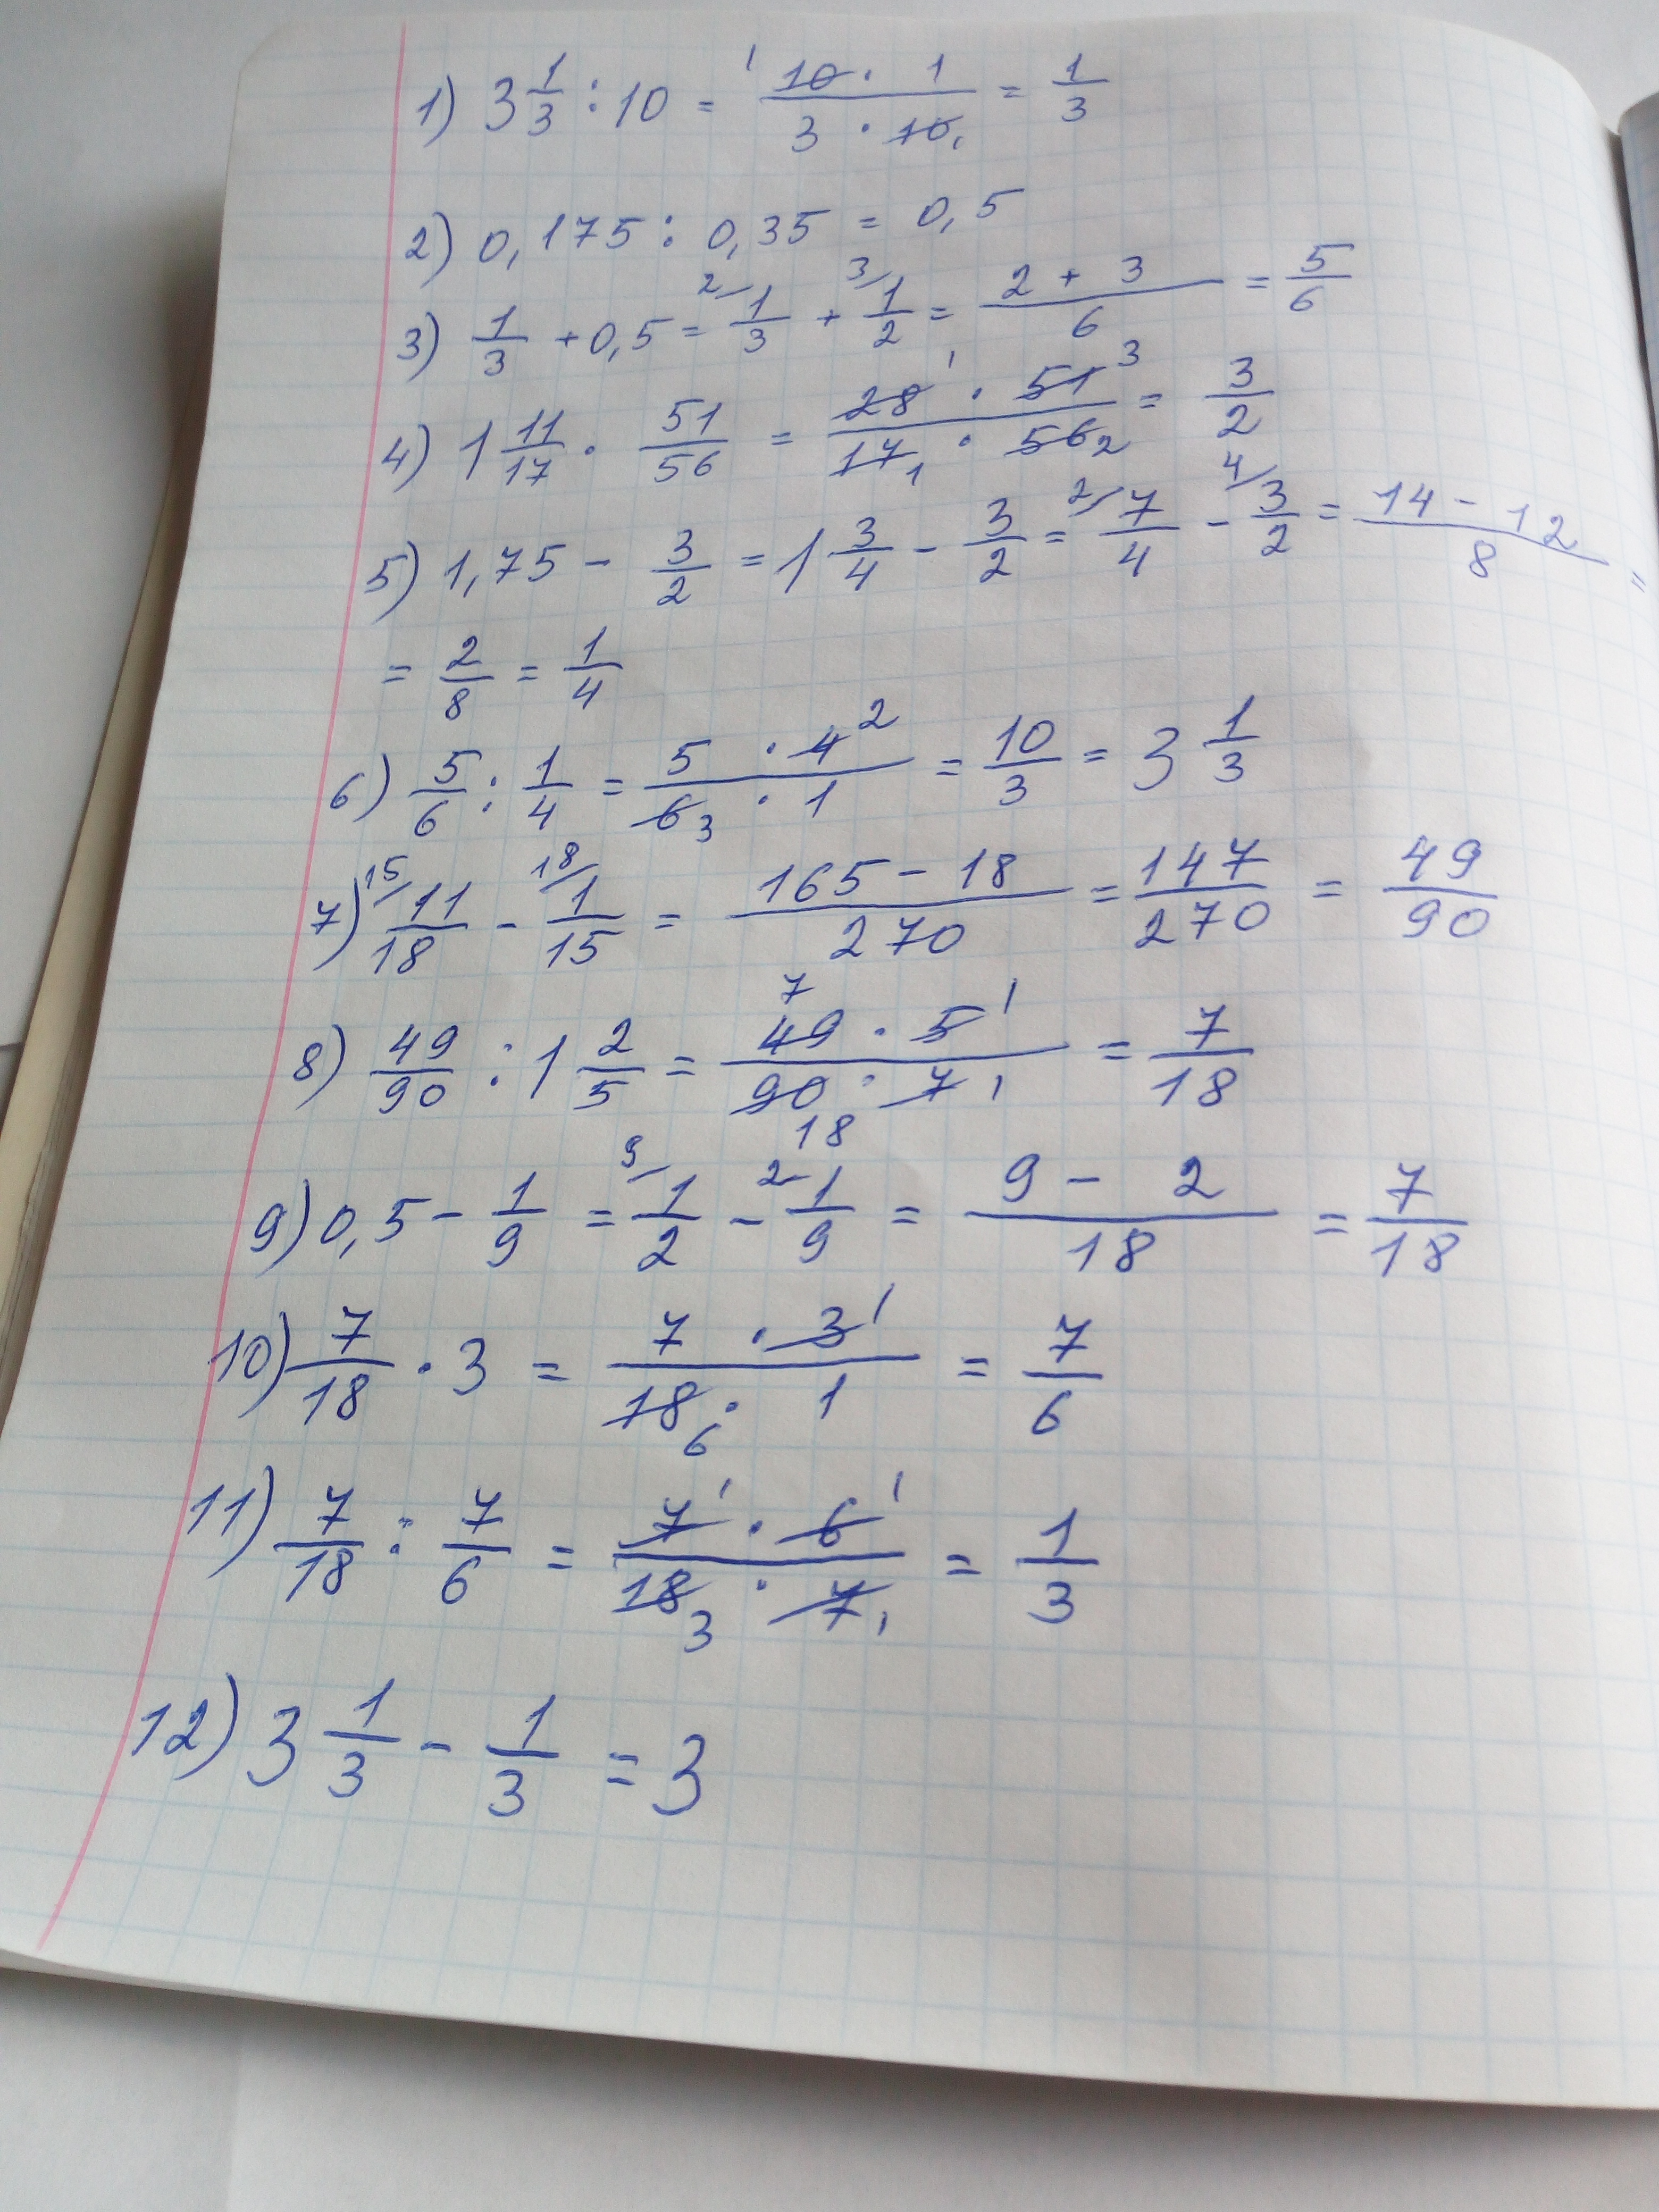 1) 3 1/3 : 10 = (10 · 1)/(3 · 10) = 1/3
2) 0,175 : 0,35 = 0,5
3) 1/3 + 0,5 = 1/3 + 1/2 = (2 + 3)/6 = 5/6
4) 1 11/17 · 51/56 = (28 · 51)/(17 · 56) = 3/2
5) 1,75 - 3/2 = 1 3/4 - 3/2 = 7/4 - 3/2 = (14 - 12)/8 =
= 2/8 = 1/4
6) 5/6 : 1/4 = (5 · 4)/(6 · 1) = 10/3 = 3 1/3
7) 11/18 - 1/15 = (165 - 18)/270 = 147/270 = 49/90
8) 49/90 : 1 2/5 = (49 · 5)/(90 · 7) = 7/18
9) 0,5 - 1/9 = 1/2 - 1/9 = (9 - 2)/18 = 7/18
10) 7/18 · 3 = (7 · 3)/(18 · 1) = 7/6
11) 7/18 : 7/6 = (7 · 6)/(18 · 7) = 1/3
12) 3 1/3 - 1/3 = 3